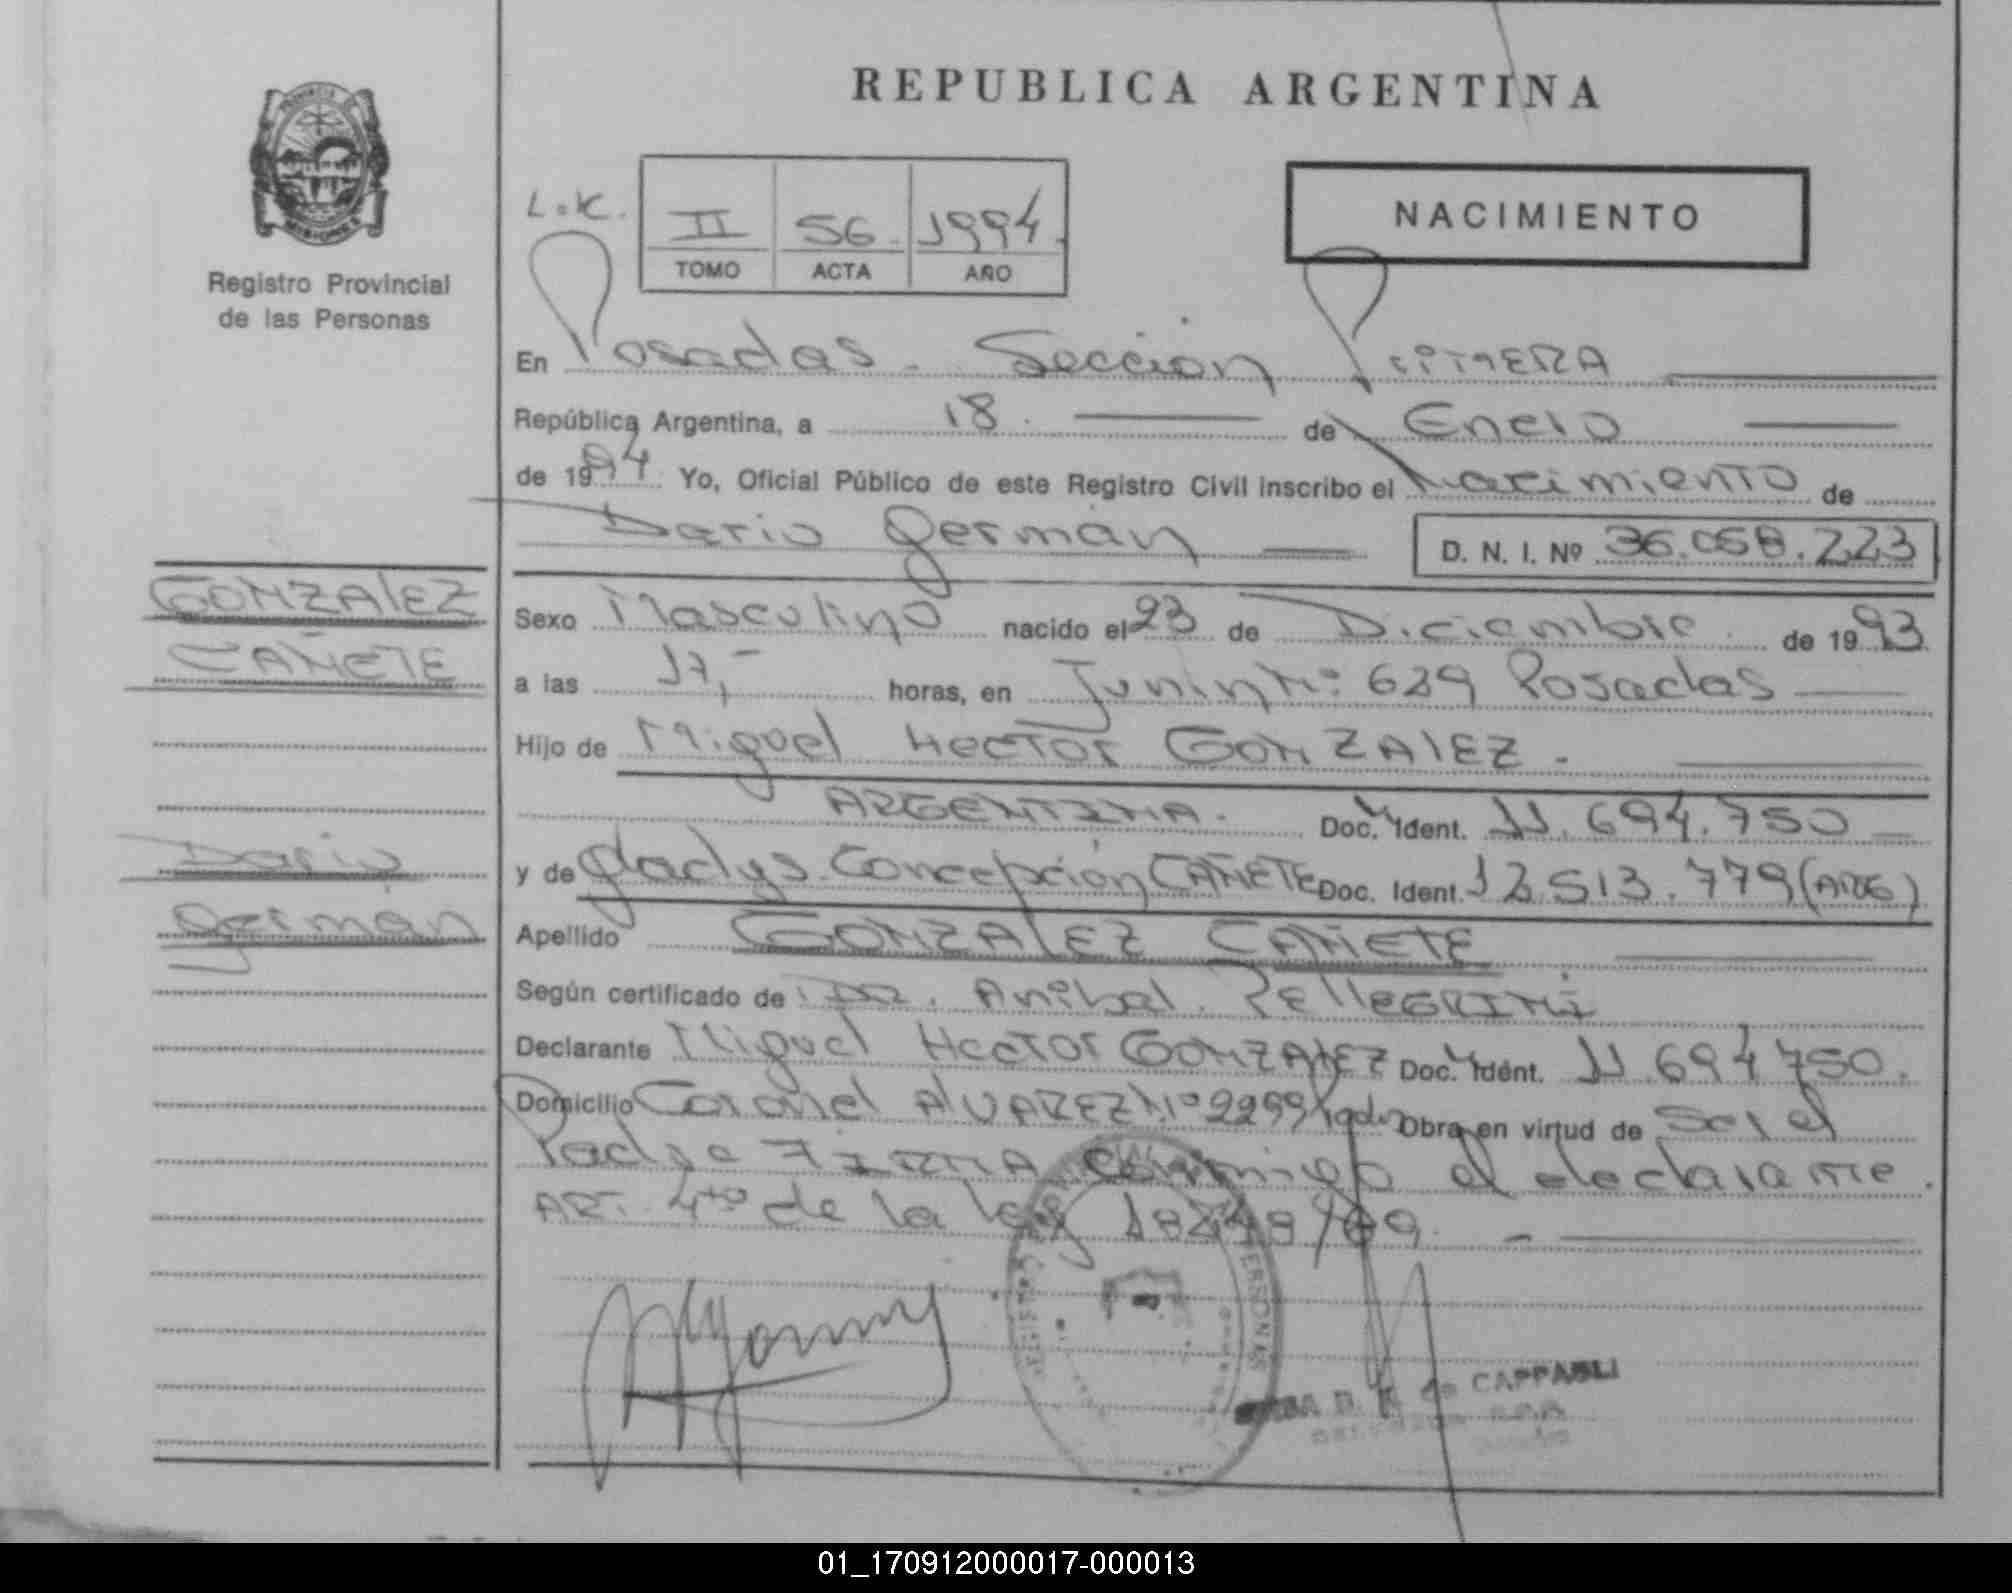 REPUBLICA ARGENTINA
PROVINCIA DE
MISIONES
Registro Provincial
de las Personas
L.K.
II 56. 1994.
TOMO ACTA AÑO
NACIMIENTO
En Posadas. Sección Primera
República Argentina, a 18. de Enero
de 1994. Yo, Oficial Público de este Registro Civil inscribo el Nacimiento de
Dario Germán D. N. I. Nº 36.058.223
GONZALEZ
CAÑETE
Sexo Masculino nacido el 23 de Diciembre. de 1993.
a las 17,- horas, en Junín Nº 639 Posadas
Hijo de Miguel Hector GONZALEZ.
ARGENTINA. Doc. Ident. 11.694.750
y de Gladys Concepción CAÑETE Doc. Ident. 12.513.779 (ARG)
Dario
Germán
Apellido GONZALEZ CAÑETE
Según certificado de: DR. Anibal. PELLEGRINI
Declarante Miguel Hector GONZALEZ Doc. Ident. 11.694.750.
Domicilio Coronel ALVAREZ Nº 2299 Obra en virtud de Ser el
Padre FIRMA conmigo el declarante.
ART. 4to de la ley 18248/69. -
PERSONAS
de CAPPABLI
01_170912000017-000013